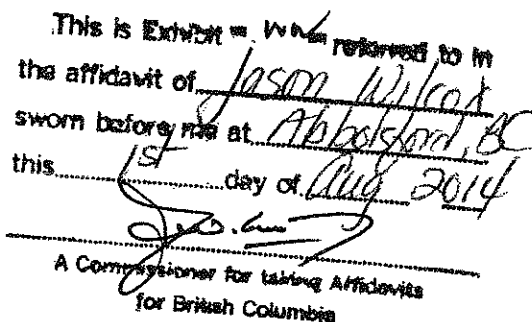 This is Exhibit " WW " referred to in
the affidavit of Jason Wilcox
sworn before me at Abbotsford, BC
this 1st day of Aug 2014
A Commissioner for taking Affidavits
for British Columbia